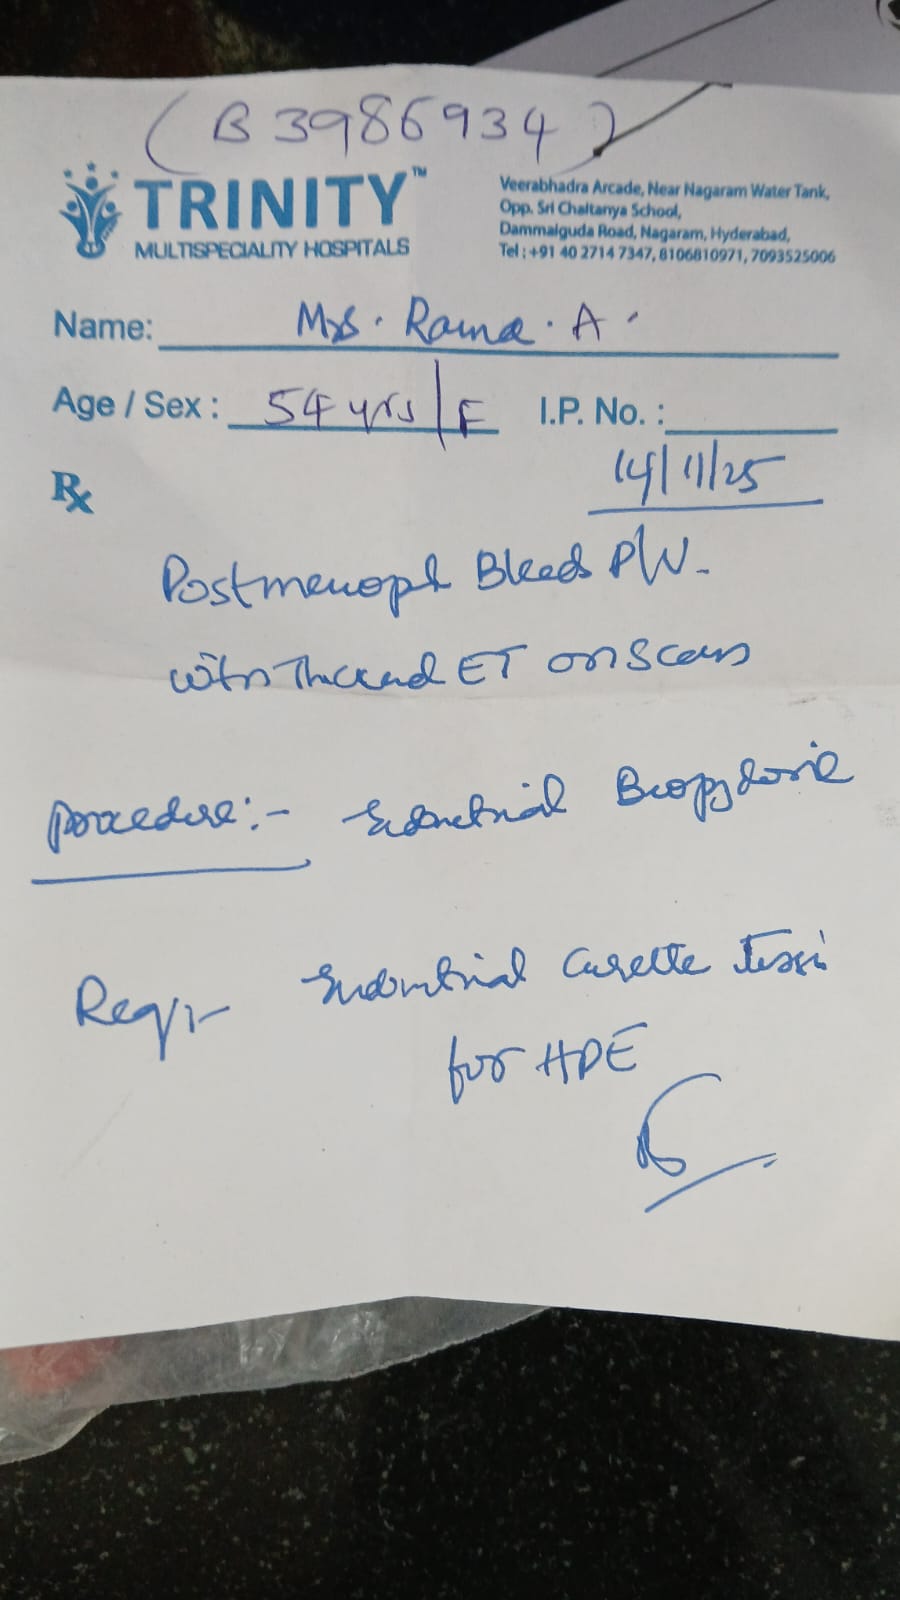 (B 3986934)
TRINITY™
MULTISPECIALITY HOSPITALS
Veerabhadra Arcade, Near Nagaram Water Tank,
Opp. Sri Chaitanya School,
Dammaiguda Road, Nagaram, Hyderabad,
Tel : +91 40 2714 7347, 8106810971, 7093525006
Name: Mrs. Rama. A.
Age / Sex : 54 yrs/F I.P. No. :
14/11/25
Rx
Bleeds P/V.
with ET on Scan
procedure:- Endometrial Biopsy done
Req:- Endometrial Curette
for HPE